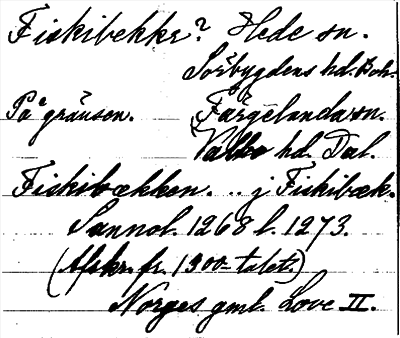 Fiskibekkr? Hede sn.
Sörbygdens hd. Boh.
På gränsen. (Färgelanda sn.
Valbo hd. Dal.
Fiskibækken. .. j Fiskibæk.
Sannol. 1268 l. 1273.
(Afskr. fr. 1300-talet.)
Norges gml. Love II.